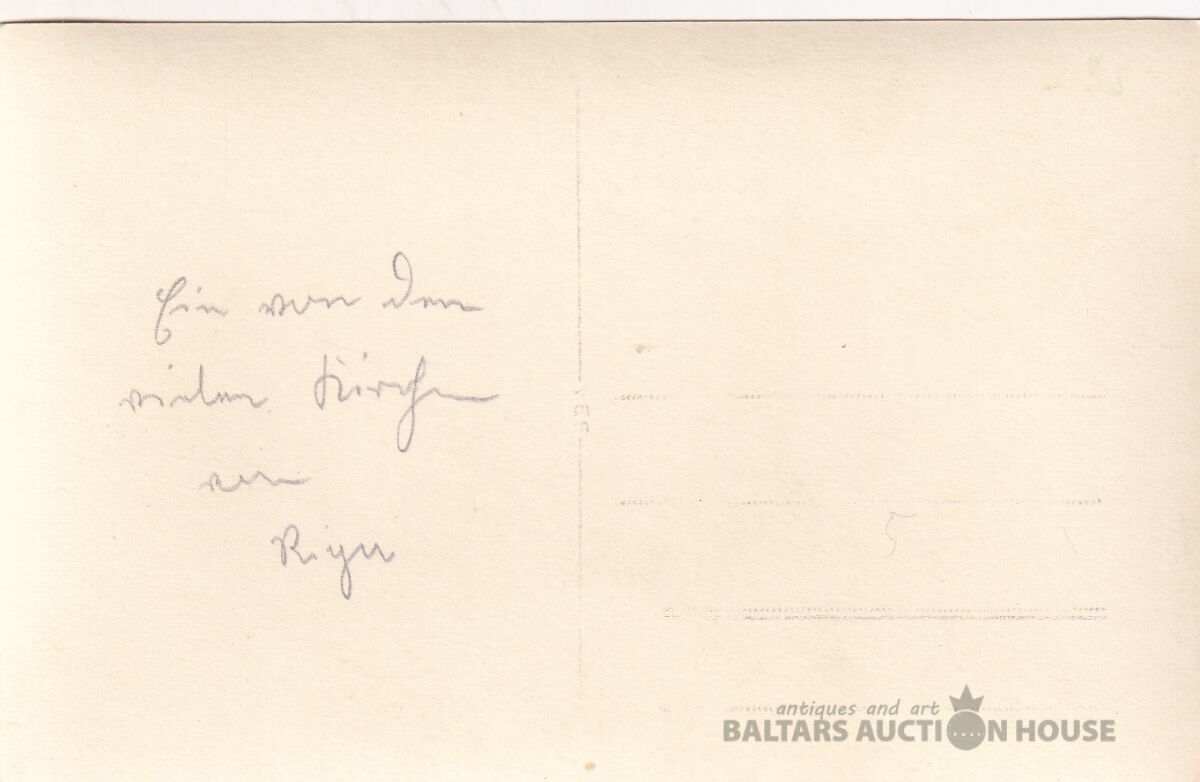 Ein von den
vielen Kirchen
von
Riga
5
antiques and art
BALTARS AUCTION HOUSE